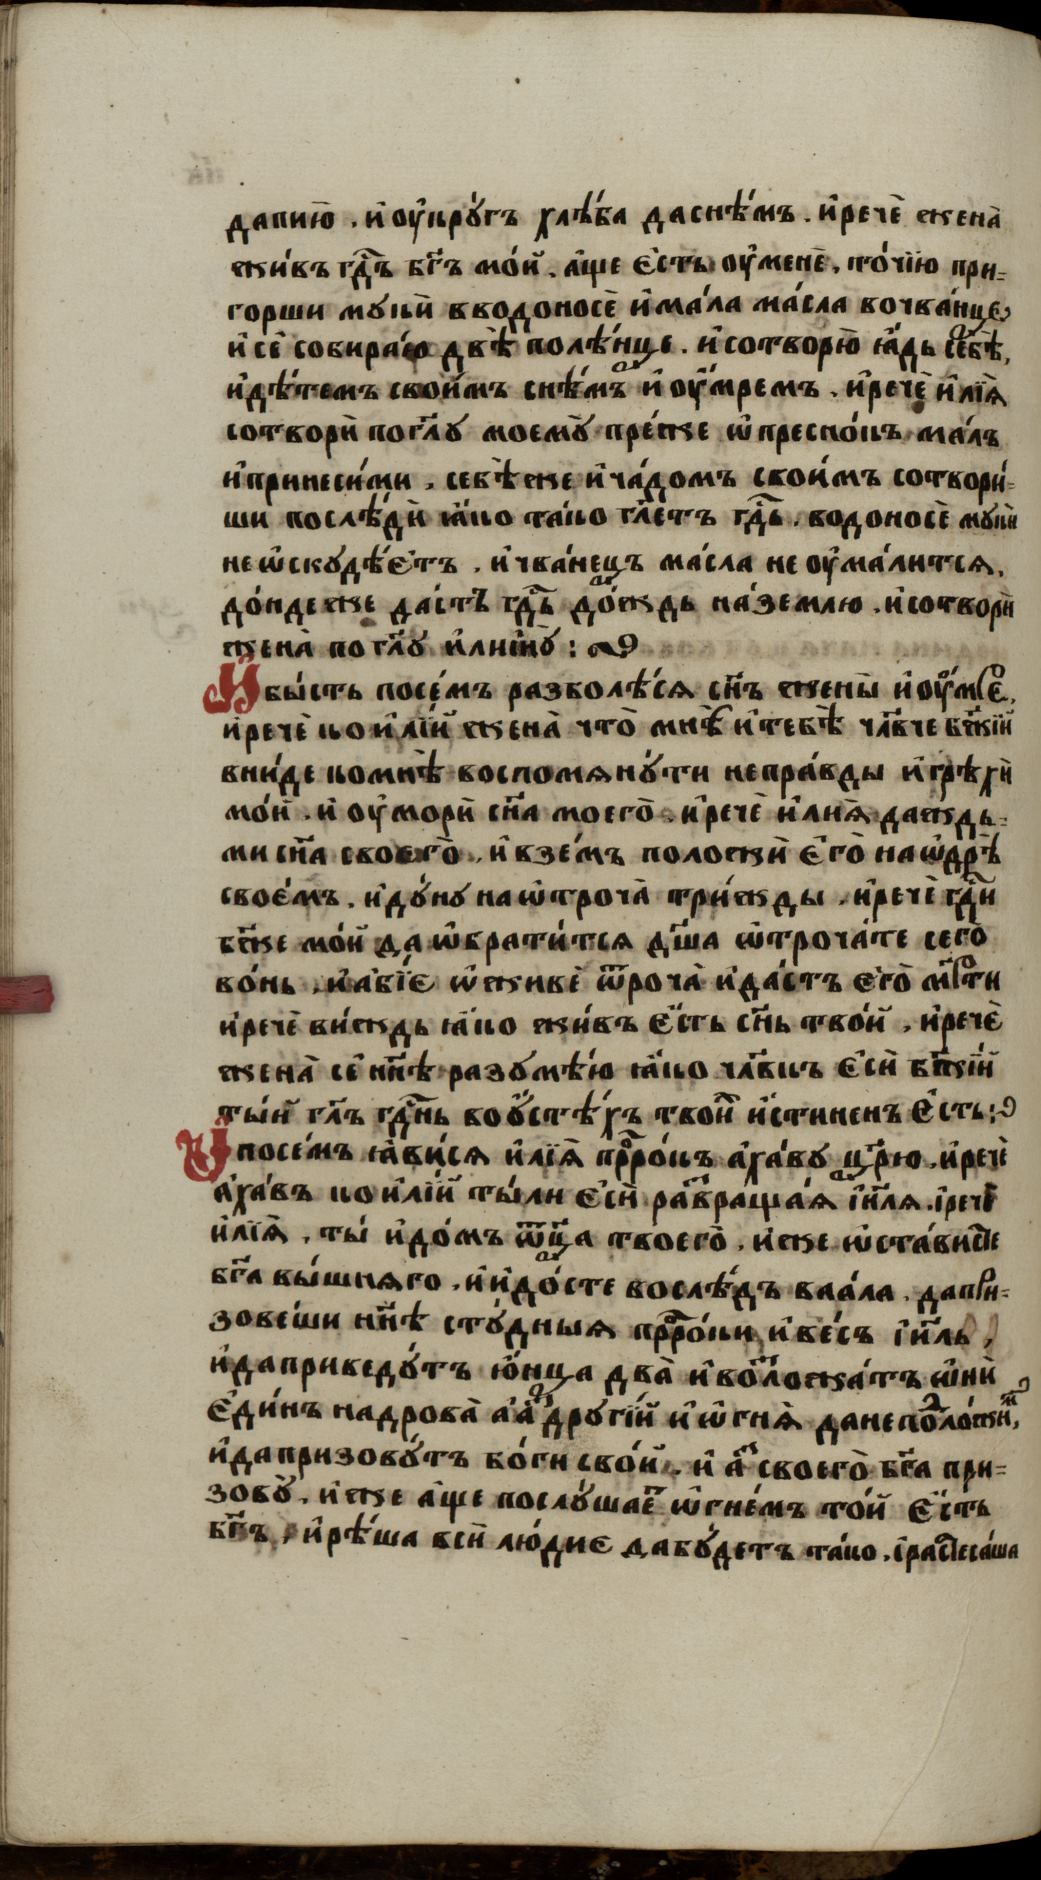 дапию̀ . и҆ ѹ҆крꙋ́гъ хлѣ́ба даснѣ́мъ . и҆речѐ жена̀
жи́въ гдⷭ҇ь бг҃ъ мо́й . а҆́ще є҆́сть ѹ҆менѐ , то́чїю при=
горши мꙋки̏ вводоносѐ и҆ма́ла ма́сла вочва́нце
и҆сѐ собира́ю двѣ̀ полѣ́нце . и҆сотворю̀ ꙗ҆́дь себѣ̀ ,
и҆дѣ́темъ свои́мъ снѣ́мъ и҆ѹ҆́мремъ . и҆речѐ и҆лїѧ̀
сотвори̏ погл҃ꙋ моемꙋ̀ пре́жде ѡ҆пресноќъ ма́лъ
и҆принеси́ми . себѣ́же и҆ча́домъ свои́мъ сотвори́=
ши послѣди̏ ꙗ҆́ко та́ко гл҃етъ гдⷭ҇ь . водоносѐ мꙋки̏
не ѡ҆скꙋдѣ́єтъ . и҆чва́нецъ ма́сла не ѹ҆ма́литсѧ ,
до́ндеже да́стъ гдⷭ҇ь до́ждь на́землю . и҆сотвори̏
жена̀ по гл҃ꙋ и҆лиинꙋ̀ :
И҆бы́сть посе́мъ разболѣ́сѧ сн҃ъ жены̀ и҆ѹ҆́мре ,
и҆речѐ ко и҆лїи̏ жена̀ что̀ мнѣ̀ и҆тебѣ̀ чл҃вче бж҃їй
вни́де комнѣ̀ воспомѧнꙋ́ти непра́вды и҆грѣхи̏
моѝ . и҆ ѹ҆мори̏ сн҃а моего̀ . и҆речѐ и҆лиѧ̀ даждь=
ми сн҃а своего̀ . и҆взе́мъ положи̏ є҆го̀ наѡ҆дрѣ̀
свое́мъ . и҆дꙋ́нꙋ наѡ҆троча̀ три́жды . и҆речѐ гдⷭ҇и
бж҃е мо́й да ѡ҆брати́тсѧ дш҃а ѡ҆троча́те сего̀
во́нь . и҆а҆бїє ѡ҆живѐ ѿроча̀ и҆да́стъ є҆го̀ мт҃ри
и҆речѐ ви́ждь ꙗ҆́ко жи́въ є҆́сть сн҃ь тво́й . и҆речѐ
жена̀ сѐ нн҃ѣ разꙋмѣ́ю ꙗ҆́ко чл҃вкъ є҆си̏ бж҃їй
ты́и҆ гл҃ъ гдⷭ҇нь воѹ҆стѣ́хъ твои́ и҆́стиненъ є҆́сть :
И҆посе́мъ ꙗ҆ви́сѧ и҆лїѧ̀ прⷪ҇ро́къ а҆ха́вꙋ цр҃ю . и҆речѐ
а҆ха́въ ко и҆лїи̏ ты́ли є҆си̏ развраща́ѧ і҆и҃лѧ . і҆речѐ
и҆лїѧ̀ , ты̀ и҆до́мъ ѿца твоего̀ . и҆́же ѡ҆ста́висте
бг҃а вы́шнѧго . и҆и҆до́сте вослѣ́дъ ваа́ла . дапри=
зове́ши нн҃ѣ стꙋ́дныѧ прⷪ҇ро́ки и҆ве́съ і҆и҃ль ,
и҆даприведꙋ́тъ ю҆́нца два̀ и҆возложа́тъ ѡ҆ни̏
є҆ди́нъ надрова̀ а҆а҆́зъ дрꙋгі́й и҆ ѡ҆гнѧ̀ данеполо́жи ,
и҆дапризовꙋ́тъ бо́ги своѝ . и҆ а҆́зъ своего̀ бг҃а при=
зовꙋ̀ . и҆́же а҆́ще послꙋ́шаеⷮ ѡ҆гне́мъ то́й є҆́сть
бг҃ъ , и҆рѣ́ша вси̏ лю́диє дабꙋ́детъ та́ко . і҆растеса́ша